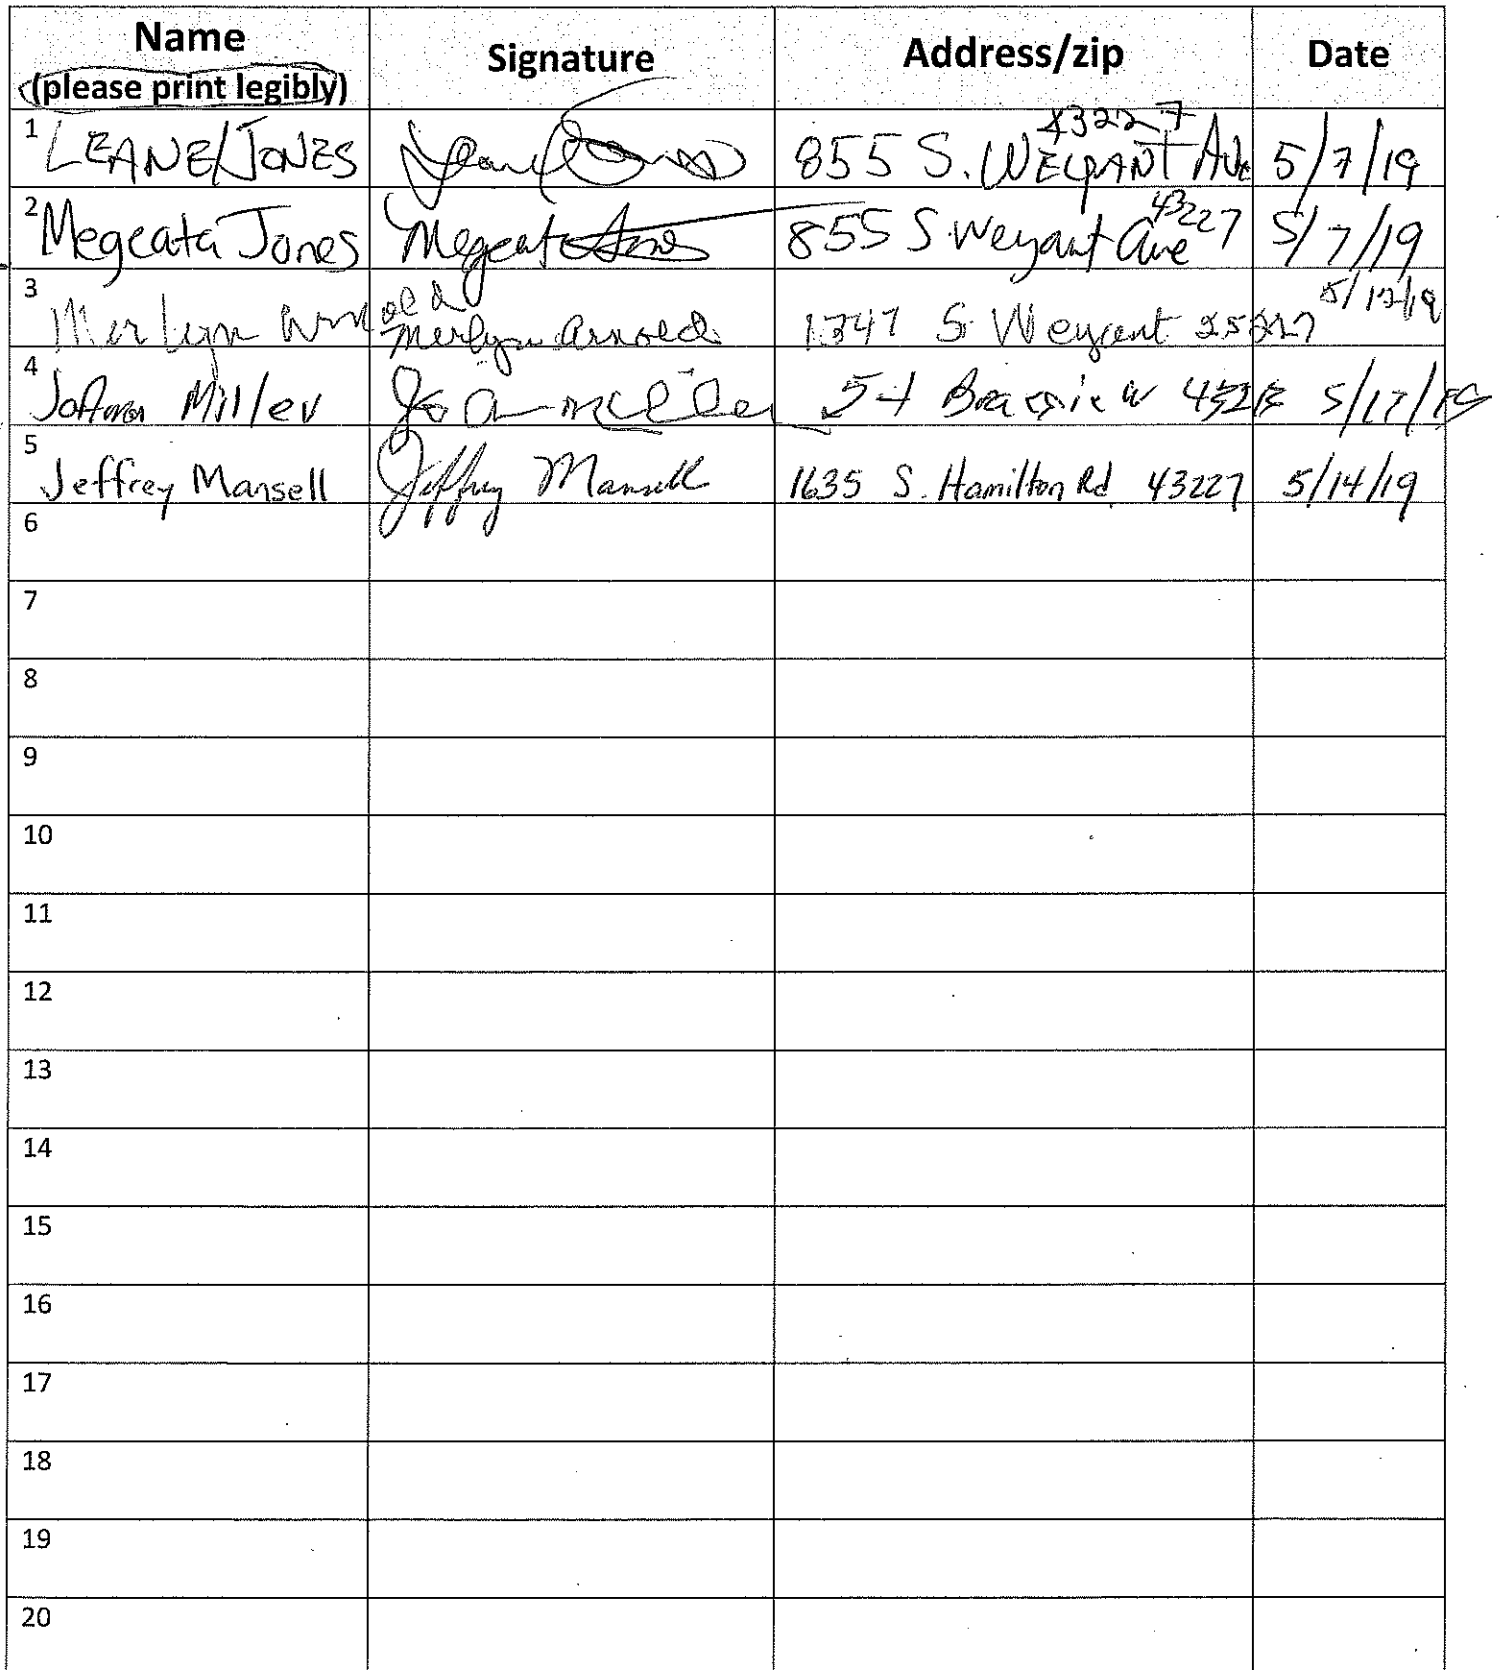 Name
(please print legibly)
Signature
Address/zip
Date
1 LEANE JONES 855 S. WEYANT Ave 43227 5/7/19
2 Megeata Jones Megeata Jones 855 S Weyant Ave 43227 5/7/19
3 Merlyn Arnold Merlyn Arnold 1347 S. Weyant 5/17/19
4 Miller 5/17/19
5 Jeffrey Mansell Jeffrey Mansell 1635 S. Hamilton Rd 43227 5/14/19
6
7
8
9
10
11
12
13
14
15
16
17
18
19
20